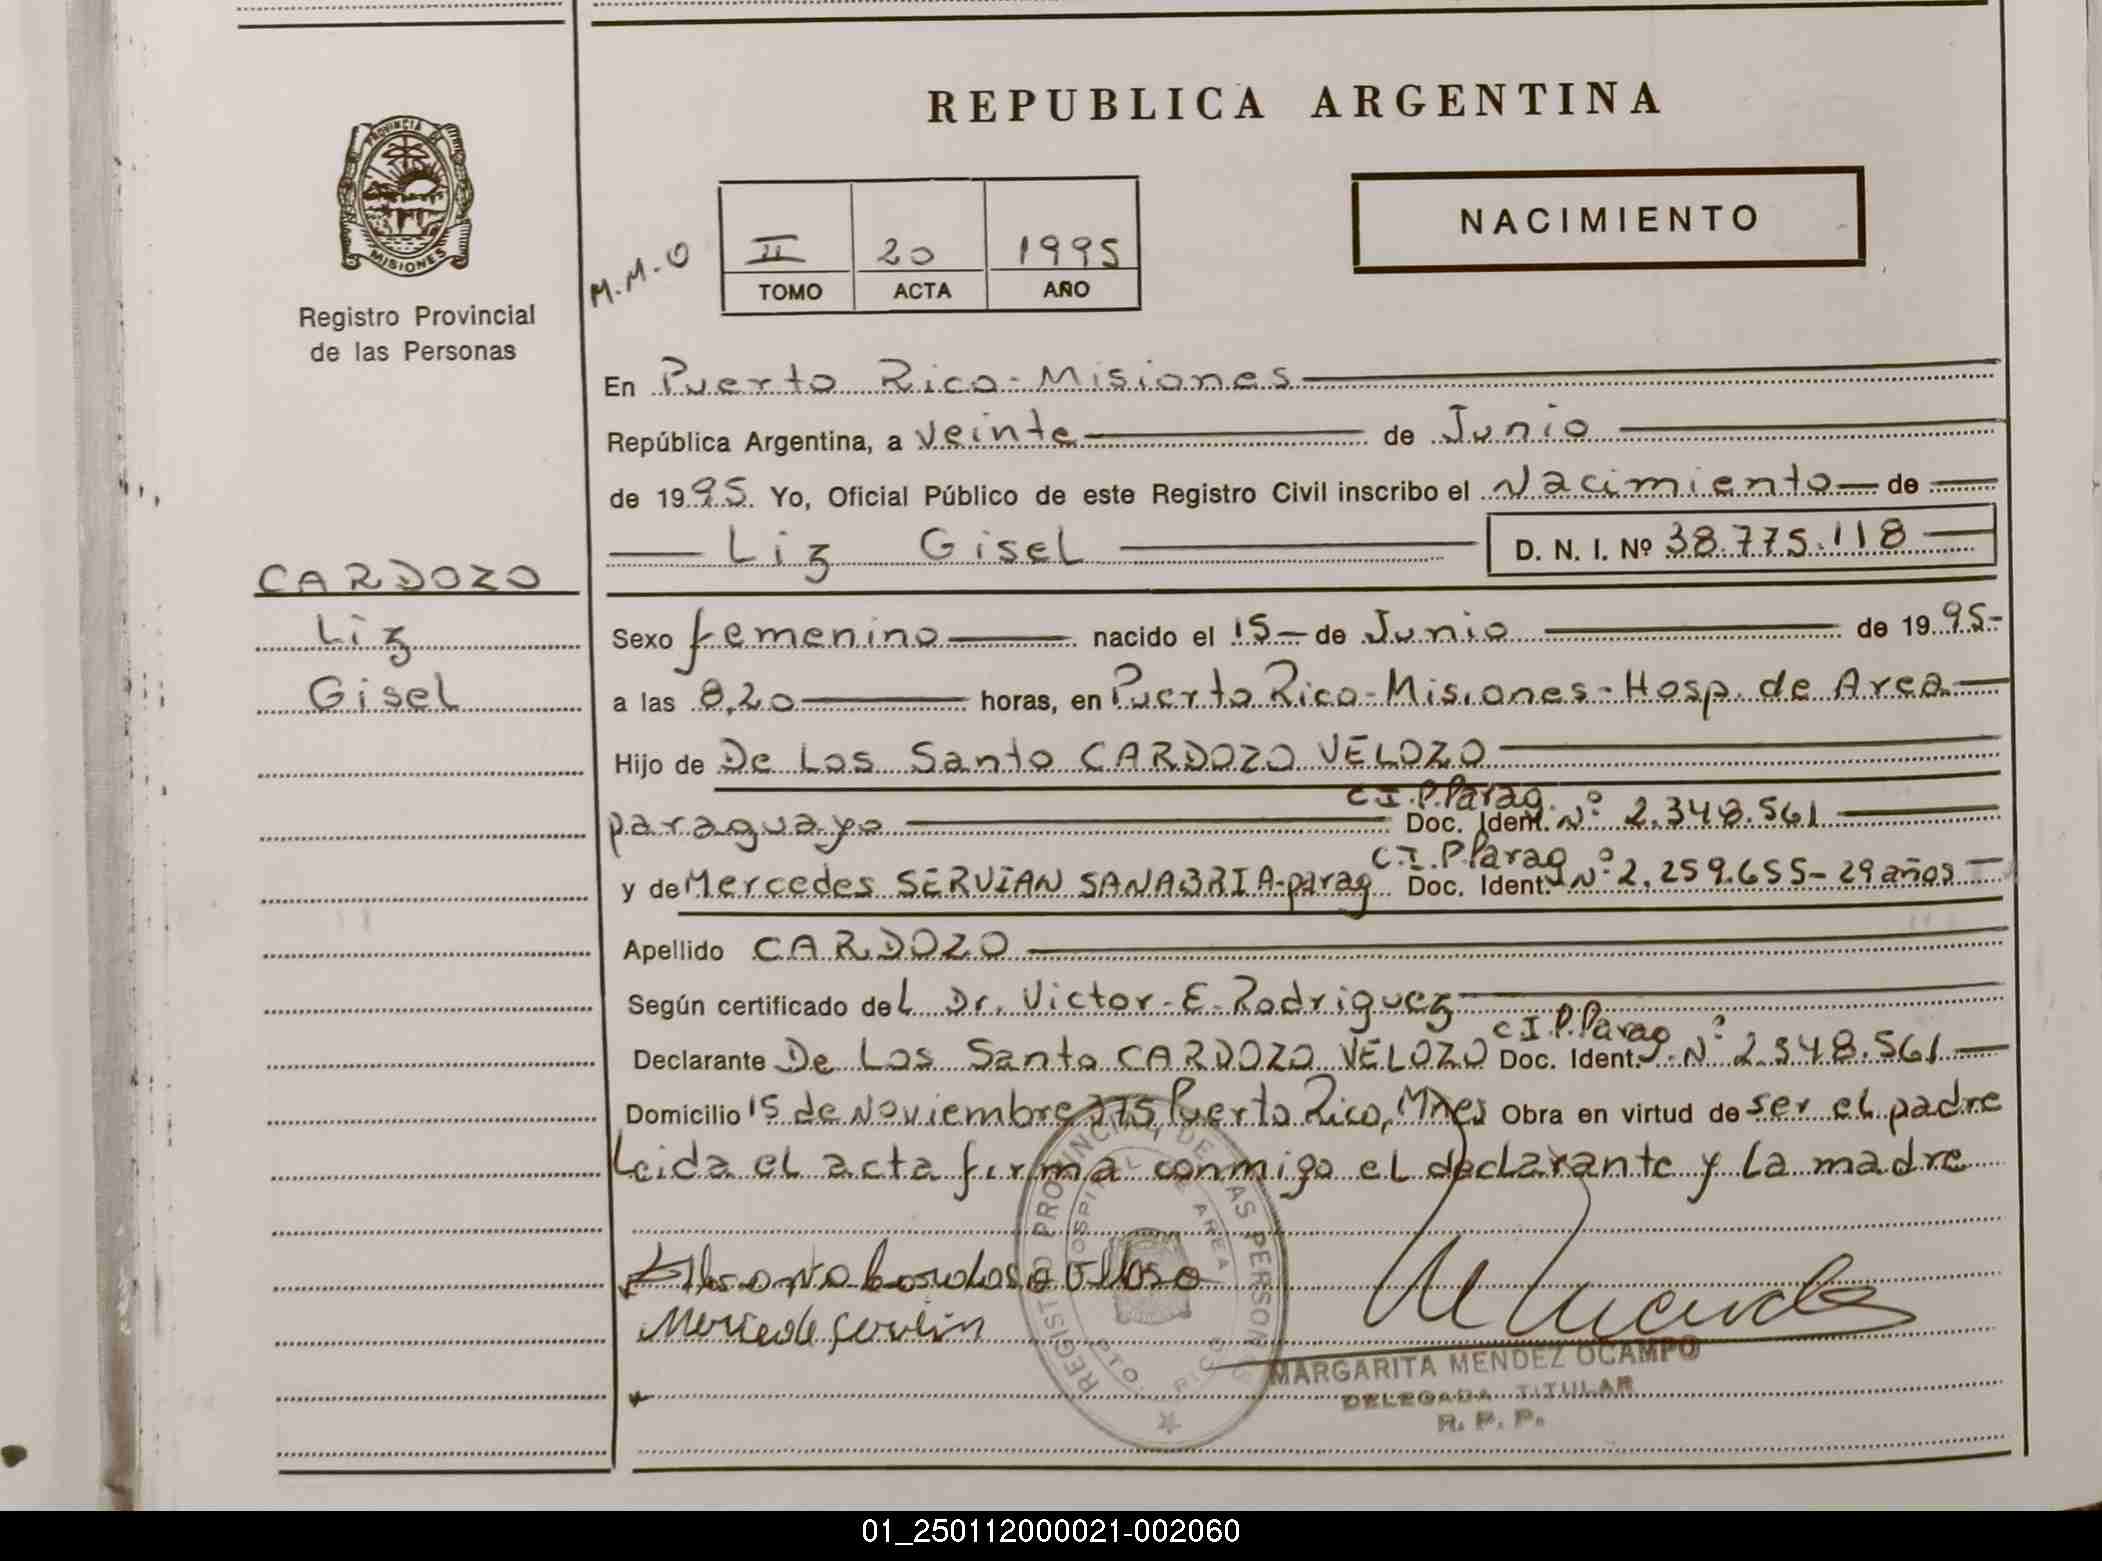 REPUBLICA ARGENTINA
PROVINCIA DE
MISIONES
Registro Provincial
de las Personas
NACIMIENTO
M.M.O
II 20 1995
TOMO ACTA AÑO
En Puerto Rico-Misiones
República Argentina, a veinte de Junio
de 1995. Yo, Oficial Público de este Registro Civil inscribo el Nacimiento de
Liz Gisel D. N. I. Nº 38.775.118
CARDOZO
Liz
Gisel
Sexo femenino nacido el 15 de Junio de 1995-
a las 8,20 horas, en Puerto Rico-Misiones-Hosp. de Area
Hijo de De Los Santo CARDOZO VELOZO
C.I.P.Parag.
paraguayo Doc. Ident. Nº 2.348.561
C.I.P.Parag
y de Mercedes SERVIAN SANABRIA-parag Doc. Ident. Nº 2.259.655-29 años
Apellido CARDOZO
Según certificado del Dr. Victor-E-Rodriguez
C.I.P.Parag
Declarante De Los Santo CARDOZO VELOZO Doc. Ident. Nº 2.348.561
Domicilio 15 de Noviembre 375 Puerto Rico, Mnes Obra en virtud de ser el padre
Leida el acta firma conmigo el declarante y la madre
REGISTRO PROVINCIAL DE LAS PERSONAS
HOSPITAL DE AREA
PTO. RICO
MARGARITA MENDEZ OCAMPO
DELEGADA TITULAR
R. P. P.
01_250112000021-002060